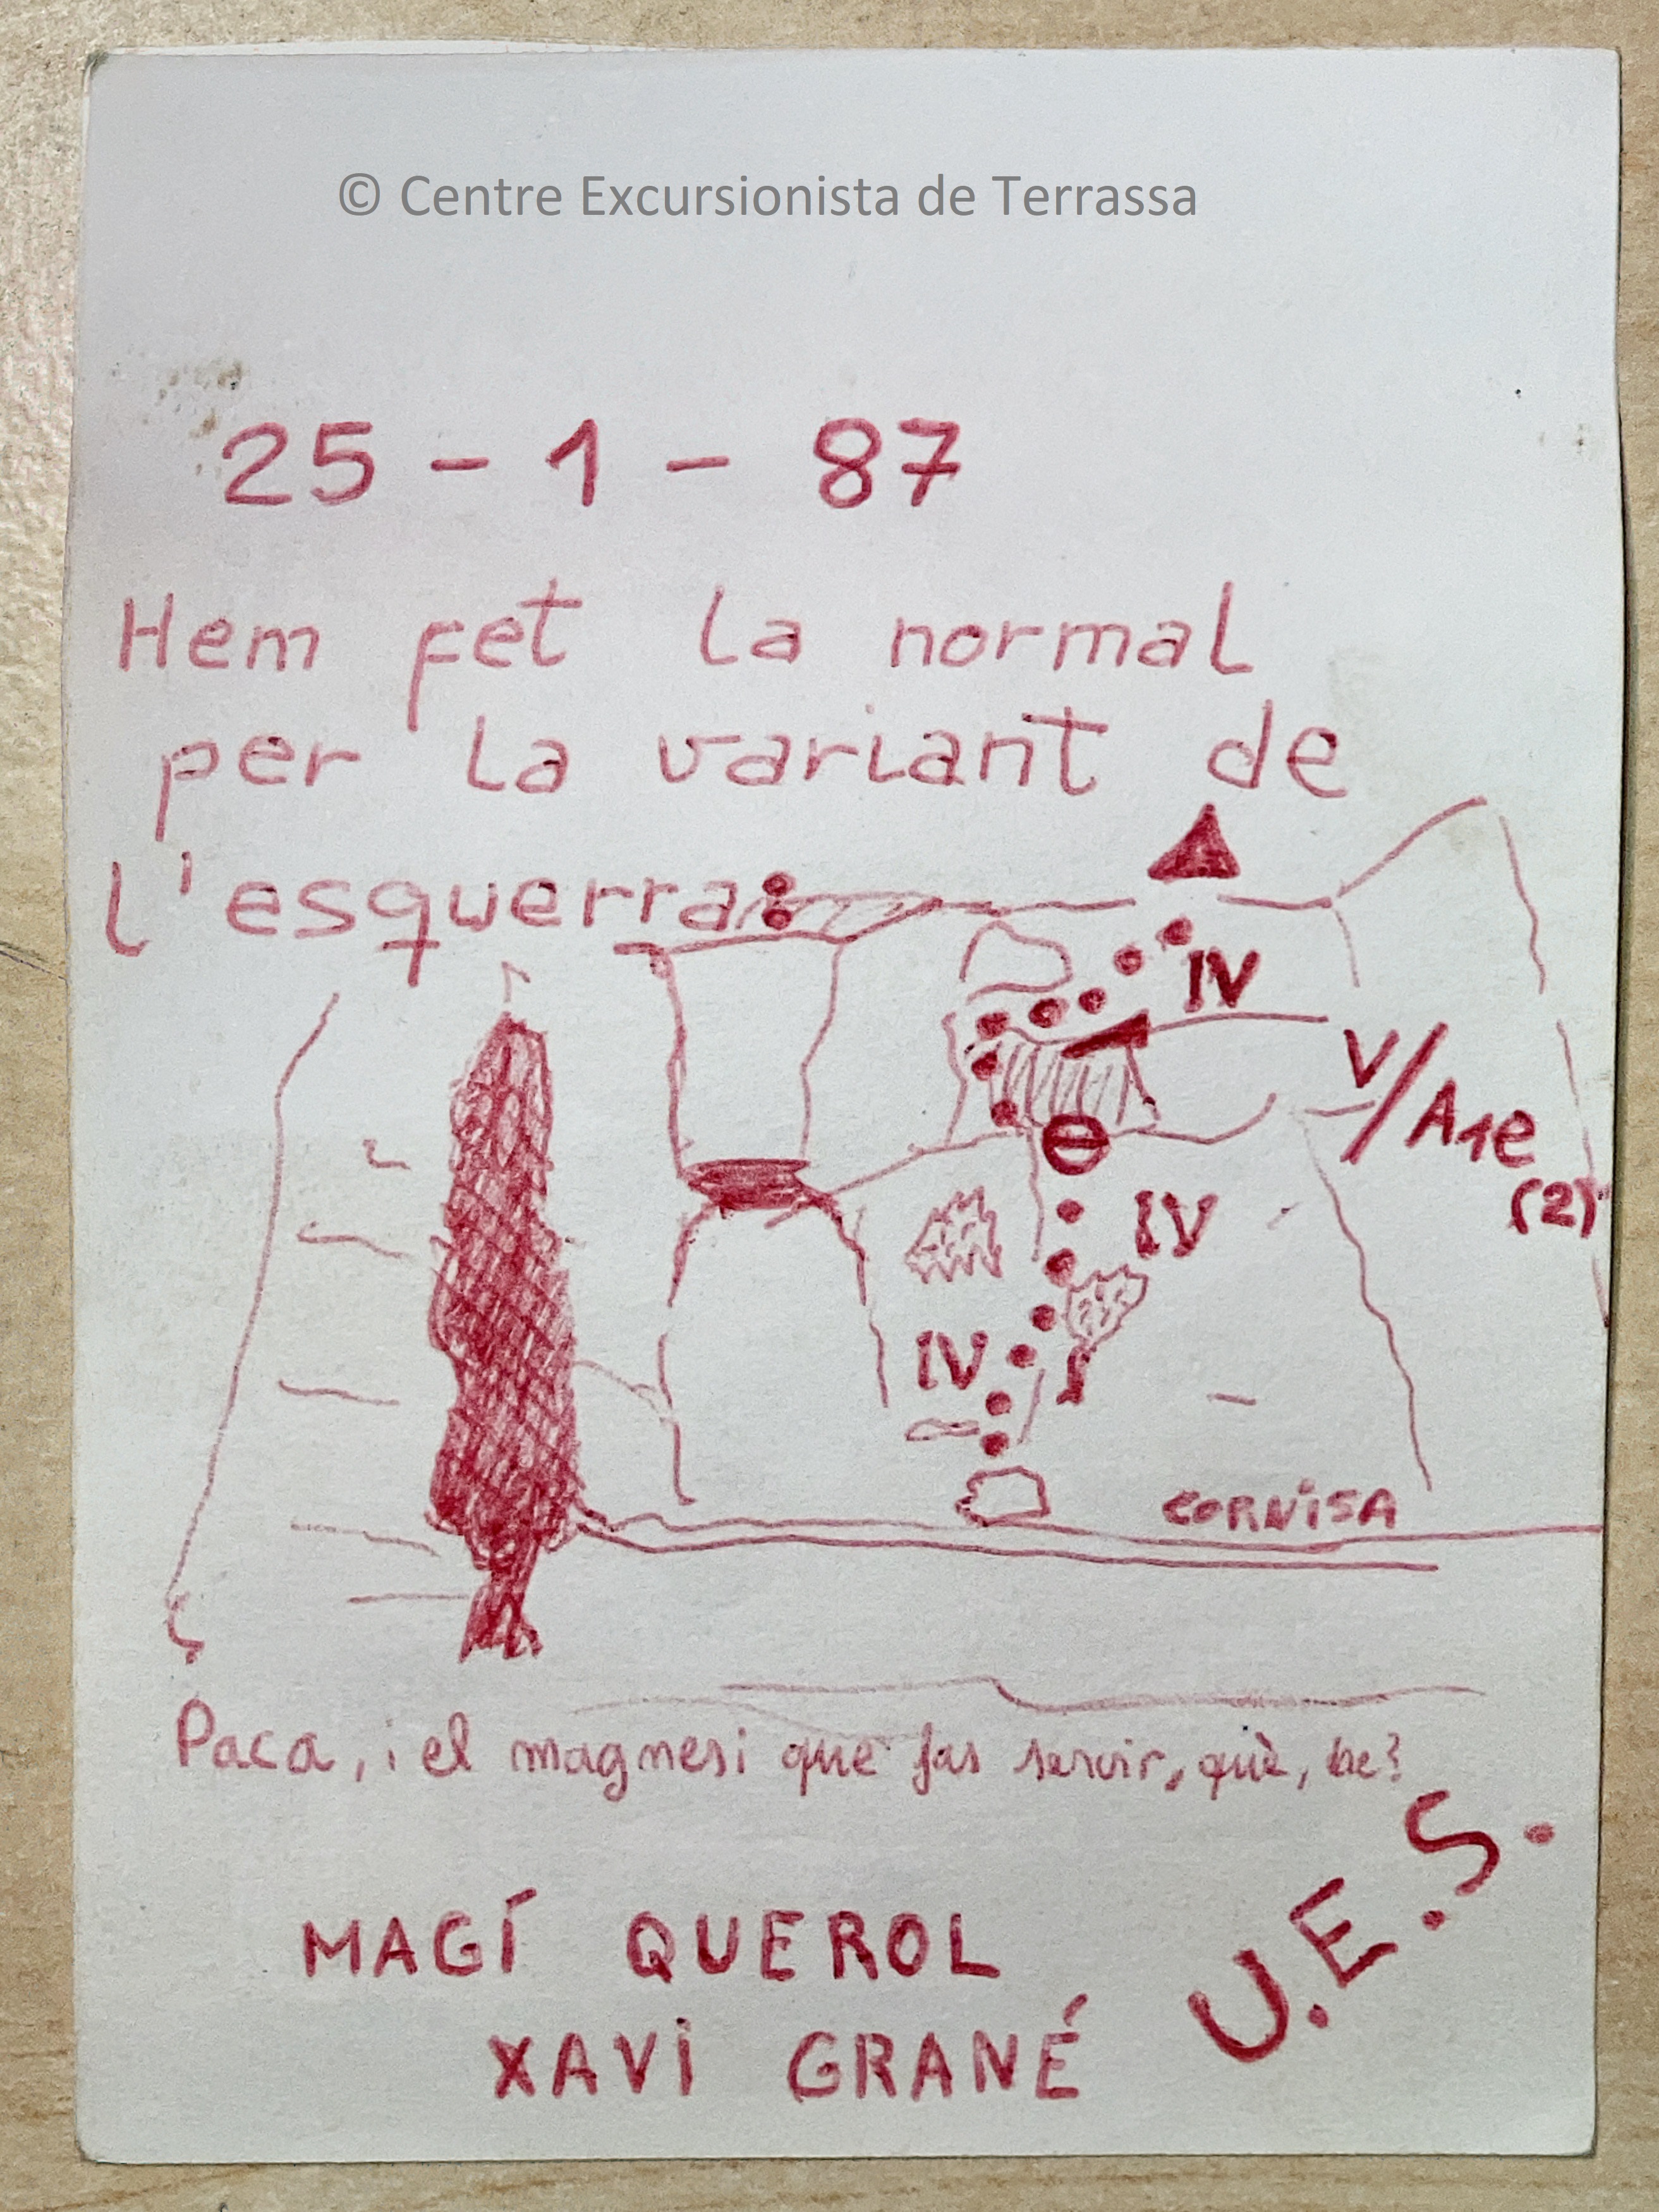 © Centre Excursionista de Terrassa
25 - 1 - 87
Hem fet la normal
per la variant de
l'esquerra:
IV
V/A1e
(2)
IV
IV
CORNISA
Paca, i el magnesi que fas servir, què, be?
MAGÍ QUEROL
XAVI GRANÉ
U.E.S.